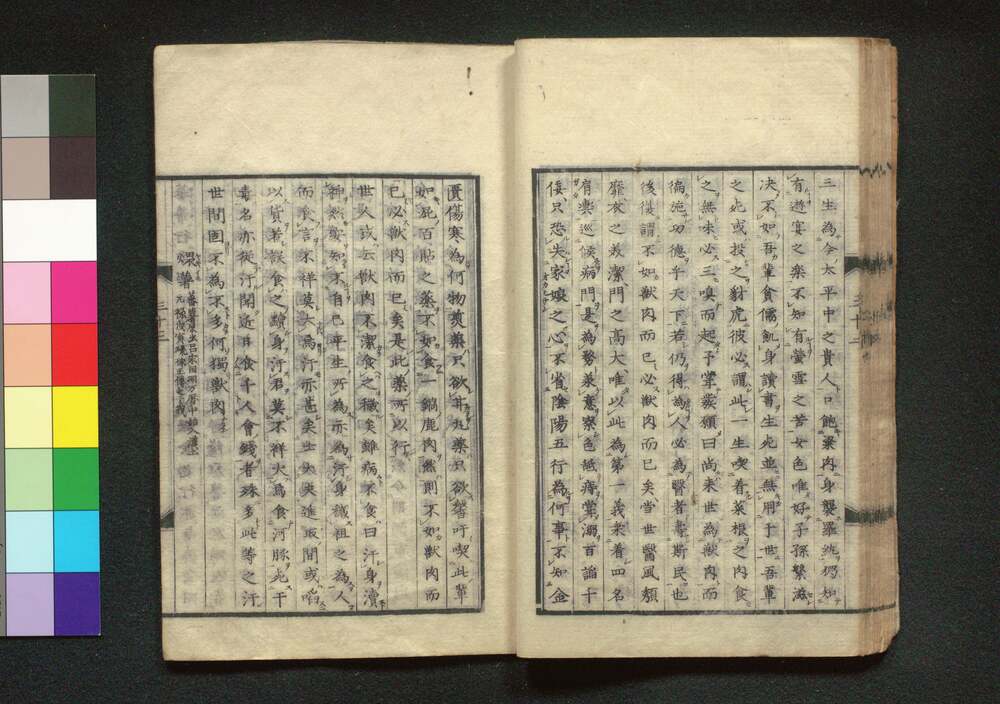 三生為今太平中之貴人口飽粱肉身襲羅紈仍知
有遊宴之楽不知有螢雪之苦女色唯好子孫繁滋
决不如吾輩貪儒飢身讀書生死並無用于世吾輩
之死或投之豺虎彼必謂此一生喫着菜根之肉食
之無味必三嗅而起予掌發願曰尚来世為獣肉而
徧施功德乎天下若仍得為人必為醫者壽斯民也
後復謂不如獣肉而已必獣肉而已矣當世醫風頽
靡衣之美潔門之高大唯以此為第一義来着四名
肩輿巡候病門是為務兼意察色舐痔嘗溺百謟十
佞只恐失家嗅之心不省陰陽五行為何事不知金
匱傷寒為何物煎藥只欲丸藥只欲吁喫此輩
如屁百貼之藥不如食一鍋鹿肉然則不如獣肉而
已必獣肉而已矣是此藥所以行
世人或云獣肉不潔食之穢矣雖病不食曰汙身瀆
神然安知不自己平生所為亦為汙身穢祖之為人
而食言不祥莫大焉汙亦甚矣士大夫進取間或啗
以貨若誤食之瀆身汙君莫不祥大焉食河豚死干
毒名亦従汙聞近日食千人會錢者殊多此等之汙
世間固不為不多何獨獣肉
三十二
三十三